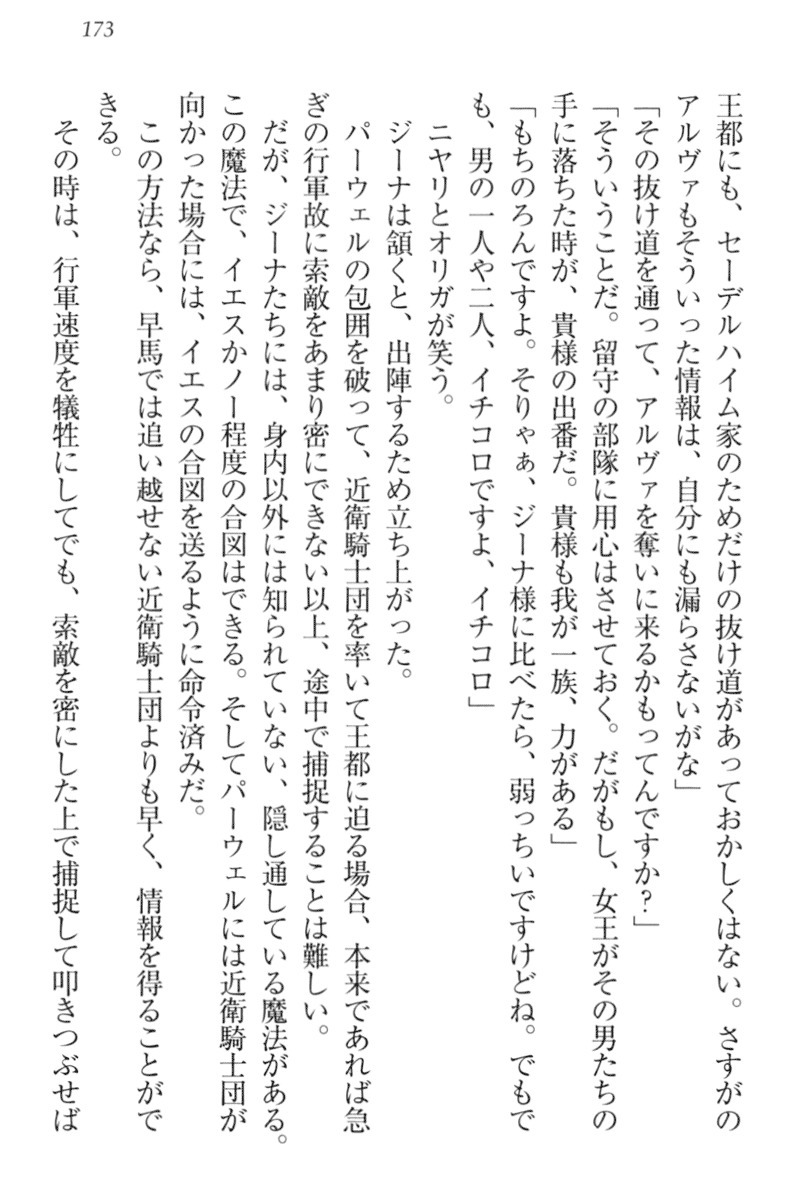 173
王都にも、セーデルハイム家のためだけの抜け道があっておかしくはない。さすがの
アルヴァもそういった情報は、自分にも漏らさないがな」
「その抜け道を通って、アルヴァを奪いに来るかもってんですか？」
「そういうことだ。留守の部隊に用心はさせておく。だがもし、女王がその男たちの
手に落ちた時が、貴様の出番だ。貴様も我が一族、力がある」
「もちのろんですよ。そりゃぁ、ジーナ様に比べたら、弱っちいですけどね。でもで
も、男の一人や二人、イチコロですよ、イチコロ」
ニヤリとオリガが笑う。
ジーナは頷くと、出陣するため立ち上がった。
パーウェルの包囲を破って、近衛騎士団を率いて王都に迫る場合、本来であれば急
ぎの行軍故に索敵をあまり密にできない以上、途中で捕捉することは難しい。
だが、ジーナたちには、身内以外には知られていない、隠し通している魔法がある。
この魔法で、イエスかノー程度の合図はできる。そしてパーウェルには近衛騎士団が
向かった場合には、イエスの合図を送るように命令済みだ。
この方法なら、早馬では追い越せない近衛騎士団よりも早く、情報を得ることがで
きる。
その時は、行軍速度を犠牲にしてでも、索敵を密にした上で捕捉して叩きつぶせば